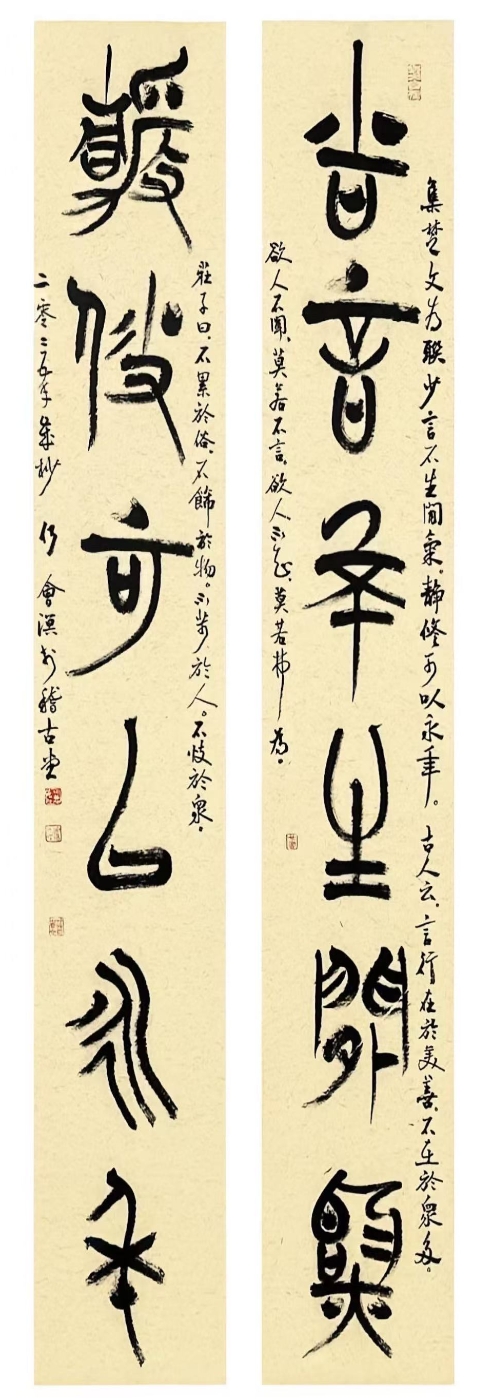 集楚文为聯少言不生閒氣。靜修可以永年。古人云，言行在於美善，不在於衆多。
少言不生閒氣
欲人不聞，莫若不言，欲人不知，莫若弗為。
莊子曰，不累於俗，不飾於物。不苟於人。不忮於衆。
靜修可以永年
二零二五年歲杪 會 於稽古堂